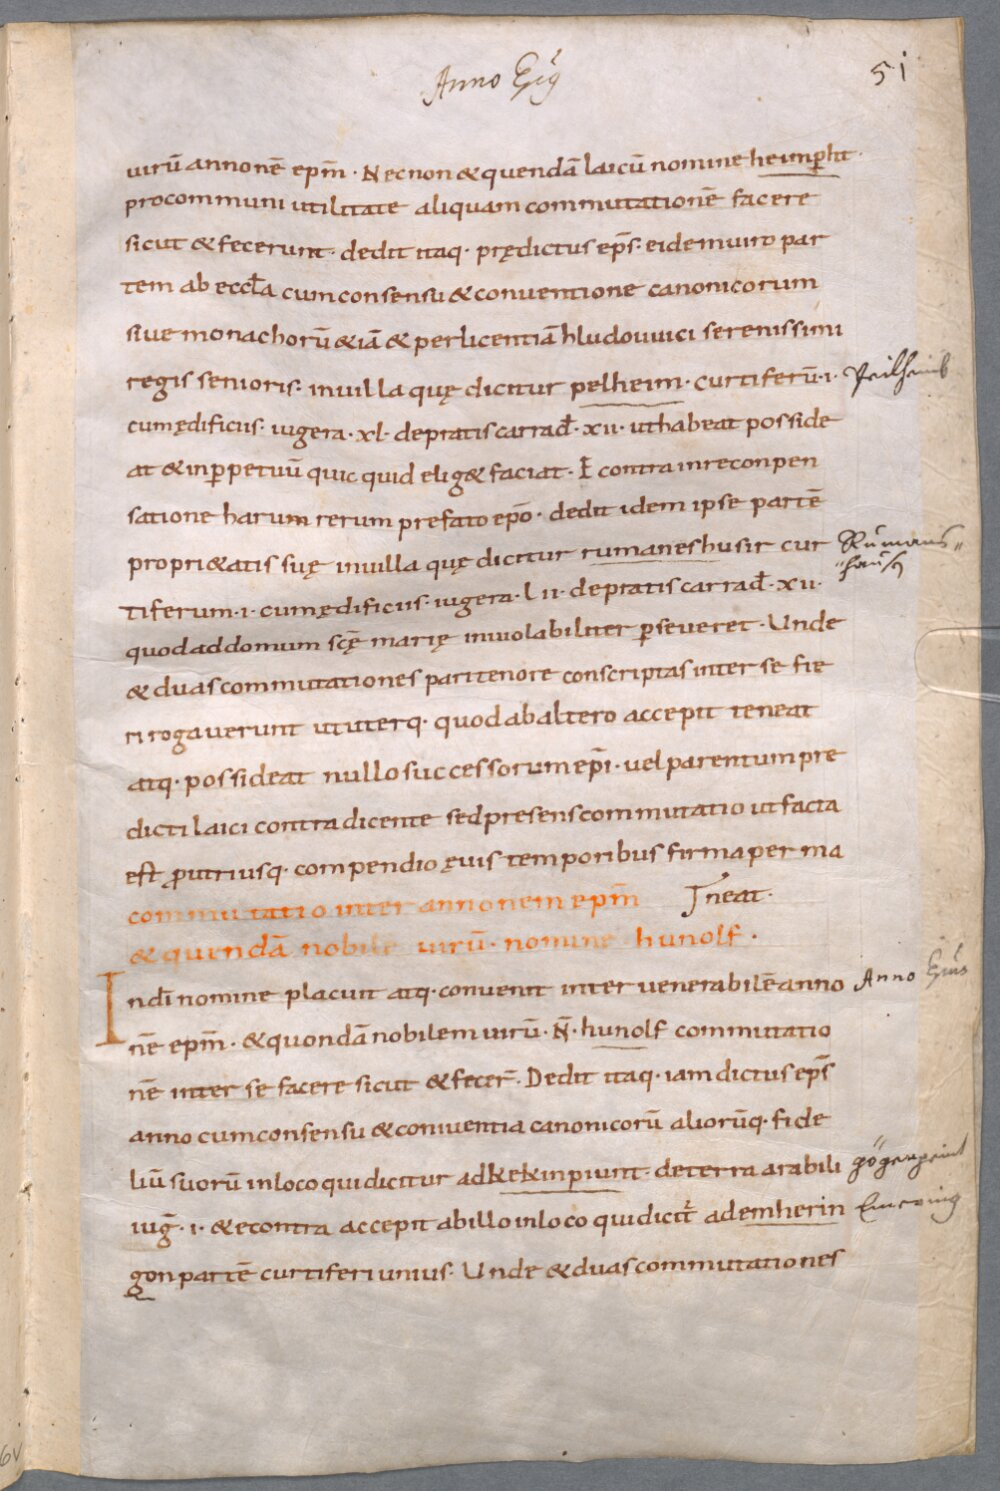 Anno Ep̄s
51
uirū annonē ep̄m · Necnon & quendā laicū nomine heimp̱ht ·
pro communi utilitate aliquam commutationē facere
sicut & fecerunt · dedit itaq· prędictus ep̄s· eidem uiro par
tem ab eccl̄a cum consensu & conuentione canonicorum
siue monachorū &iā & per licentiā hludouuici serenissimi
regis senioris · in uilla quę dicitur pelheim · curtiferū ·i·
Peilheim
cum ędificiis · iugera · xl · de pratis carrad̄ · xii · ut habeat posside
at & in p̱petuū quic quid elig& faciat · E contra in reconpen
satione harum rerum prefato ep̄o · dedit idem ipse partē
propri&atis suę in uilla quę dicitur rumaneshusir cur
Rumans„
„haus
tiferum · i · cum ędificiis · iugera · l ii · de pratis carrad̄ · xii ·
quod ad domum sc̄ę marię inuiolabiliter p̱seueret · Unde
& duas commutationes pari tenore conscriptas inter se fie
ri rogauerunt ut uterq· quod ab altero accepit teneat
atq· possideat nullo successorum ep̄i · uel parentum pre
dicti laici contra dicente sed presens commutatio ut facta
est ꝓ utriusq· compendio ęuis temporibus firma per ma
commutatio inter annonem ep̄m neat ·
& quendā nobile uirū · nomine hunolf ·
In dī nomine placuit atq· conuenit inter uenerabilē anno
Anno Ep̄s
nē ep̄m · & quondā nobilem uirū · N̄ · hunolf commutatio
nē inter se facere sicut & fecer̄ · Dedit itaq· iam dictus ep̄s
anno cum consensu & coniuentia canonicorū aliorūq· fide
liū suorū in loco qui dicitur ad kekinpiunt · de terra arabili
gögenpeint
iuḡ · i · & econtra accepit ab illo in loco qui dicit̄ ad emherin
Emering
gon partē curtiferi unius · Unde & duas commutationes